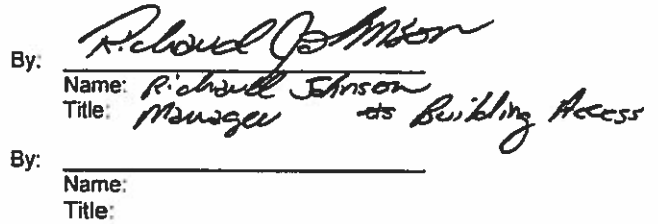 By: Richard Johnson
Name: Richard Johnson
Title: Manager as Building Access
By:
Name:
Title: